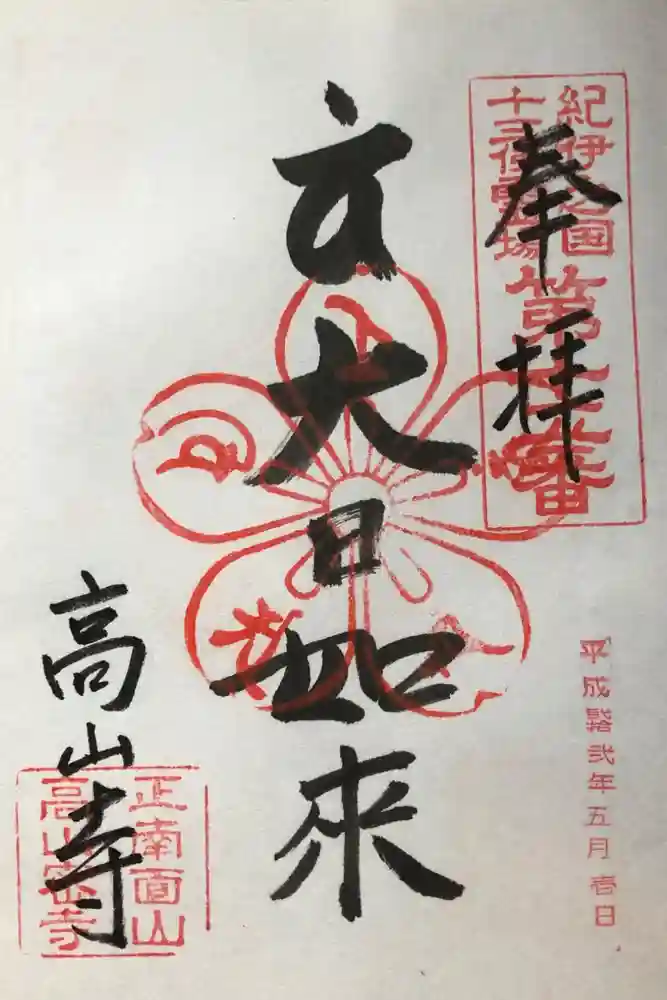 奉拝
紀伊之国
十三佛霊場
大日如來
平成拾弐年五月壱日
高山寺
正南面山
高山密寺